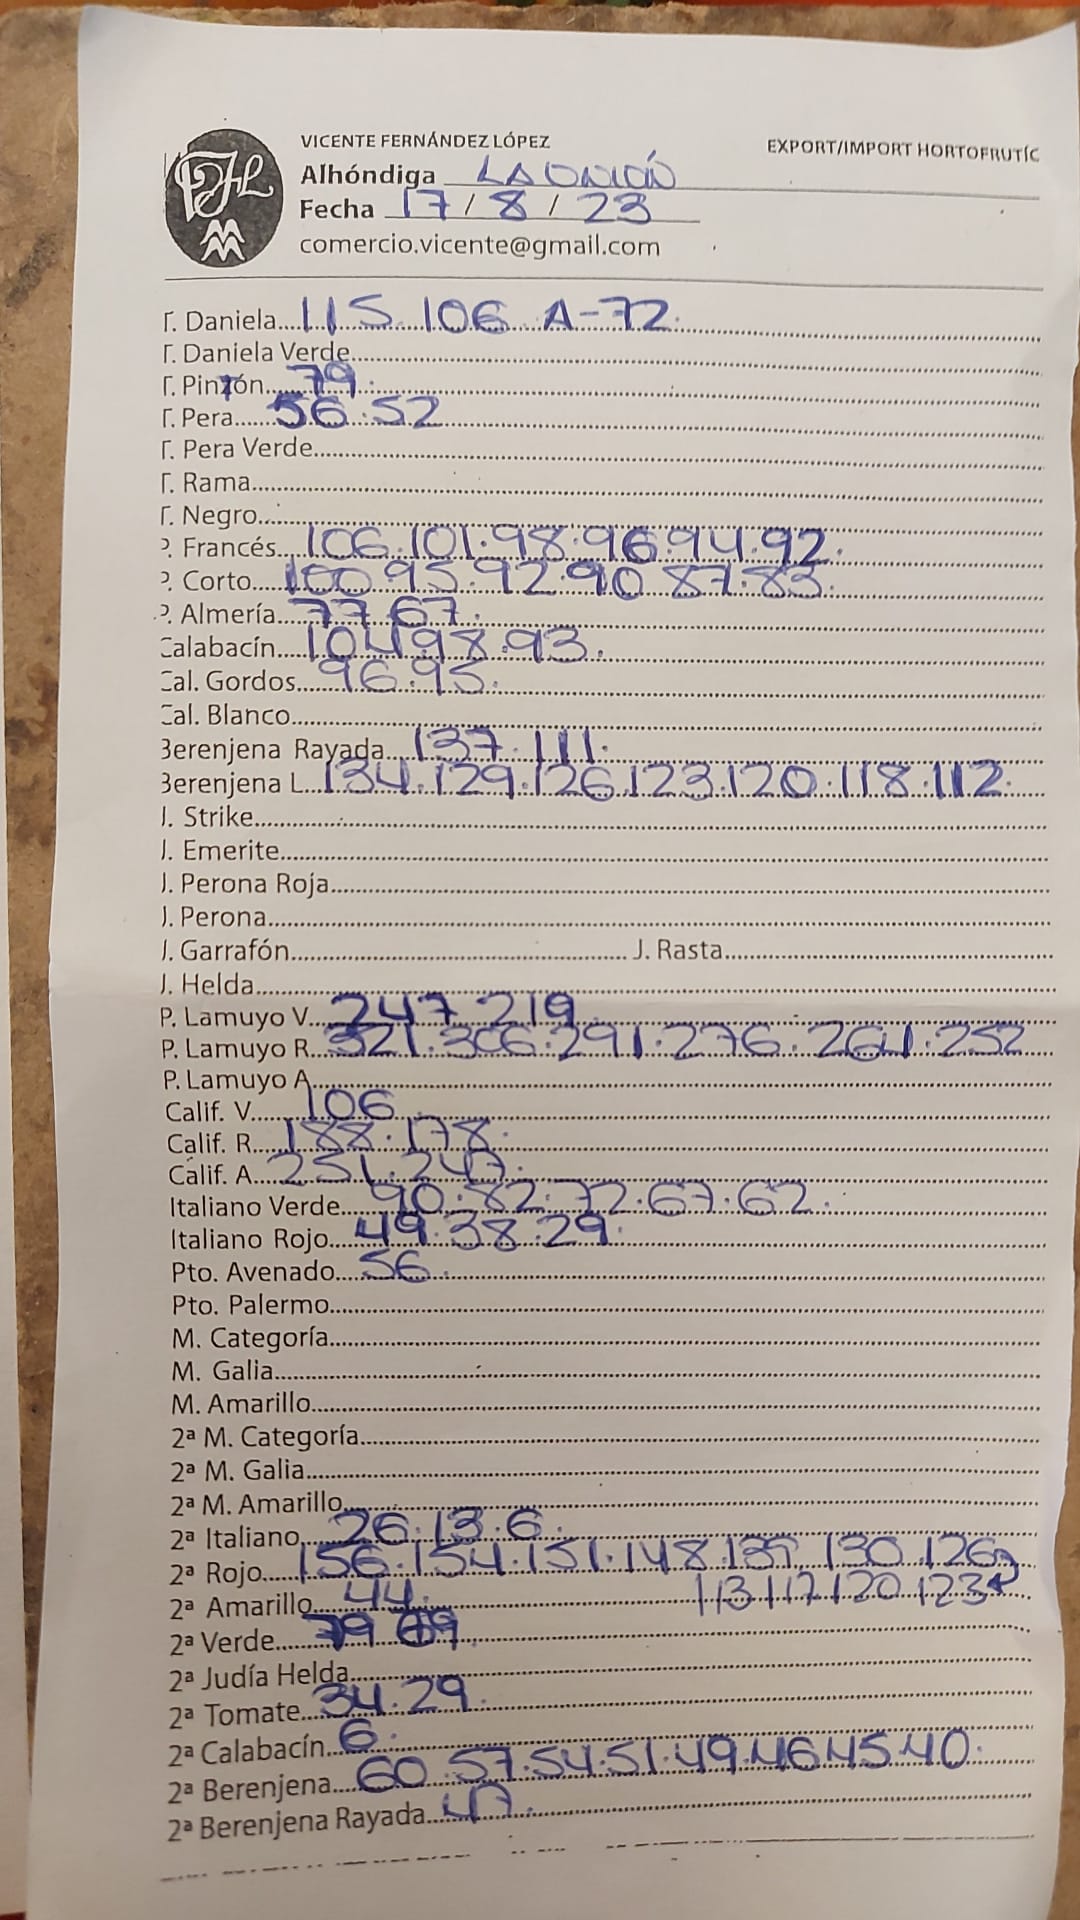 VICENTE FERNÁNDEZ LÓPEZ
EXPORT/IMPORT HORTOFRUTÍC
Alhóndiga LA UNIÓN
Fecha 17 / 8 / 23
comercio.vicente@gmail.com
T. Daniela...115. 106. A-72.
T. Daniela Verde
T. Pintón...79.
T. Pera...56.52
T. Pera Verde
T. Rama
T. Negro
P. Francés...106.101.98.96.94.92.
P. Corto...100.95.92.90.87.83.
P. Almería...77.67.
Calabacín...104.98.93.
Cal. Gordos...96.95.
Cal. Blanco
Berenjena Rayada...137.111.
Berenjena L...134.129.126.123.120.118.112.
J. Strike
J. Emerite
J. Perona Roja
J. Perona
J. Garrafón... J. Rasta
J. Helda
P. Lamuyo V...247.219.
P. Lamuyo R...321.306.291.276.261.252
P. Lamuyo A
Calif. V...106.
Calif. R...188.178.
Calif. A...251.247.
Italiano Verde...90.82.72.67.62.
Italiano Rojo...49.38.29.
Pto. Avenado...56.
Pto. Palermo
M. Categoría
M. Galia
M. Amarillo
2ª M. Categoría
2ª M. Galia
2ª M. Amarillo
2ª Italiano...26.13.6.
2ª Rojo...156.154.151.148.139.130.126
2ª Amarillo...44. 113 117 120 123
2ª Verde...79
2ª Judía Helda
2ª Tomate...34.29.
2ª Calabacín...6.
2ª Berenjena...60.57.54.51.49.46.45.40.
2ª Berenjena Rayada...47.